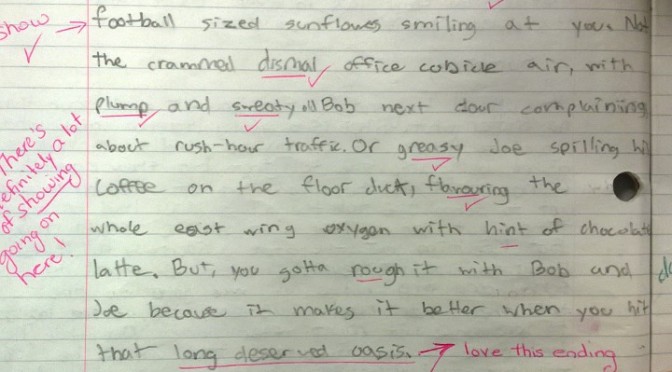 show
football sized sunflowes smiling at you. Not
the crammed dismal office cubicle air, with
plump and sweaty old Bob next dour complaining
about rush-hour traffic. Or greasy Joe spilling hi
coffee on the floor duct, flavouring the
whole east wing oxygen with hint of chocolat
latte. But, you gotta rough it with Bob and
Joe because it makes it better when you hit
that long deserved oasis.
love this ending
There's
definitely a lot
of showing
going on
here!